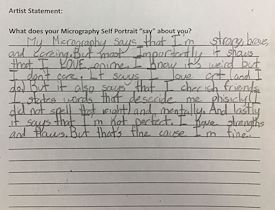 Artist Statement:
What does your Micrography Self Portrait "say" about you?
My Micrography says that I'm strong, brave,
and caring. But most importantly it shows
that I LOVE anime. I know it's weird but
I don't care. It says I love art (and I
do) But it also says that I cherish friends
I states words that descride me phisicly (I
did not spell that right) and mentally. And lastly
it says that I'm not perfect. I have strengths
and flaws. But that's fine cause I'm fine.